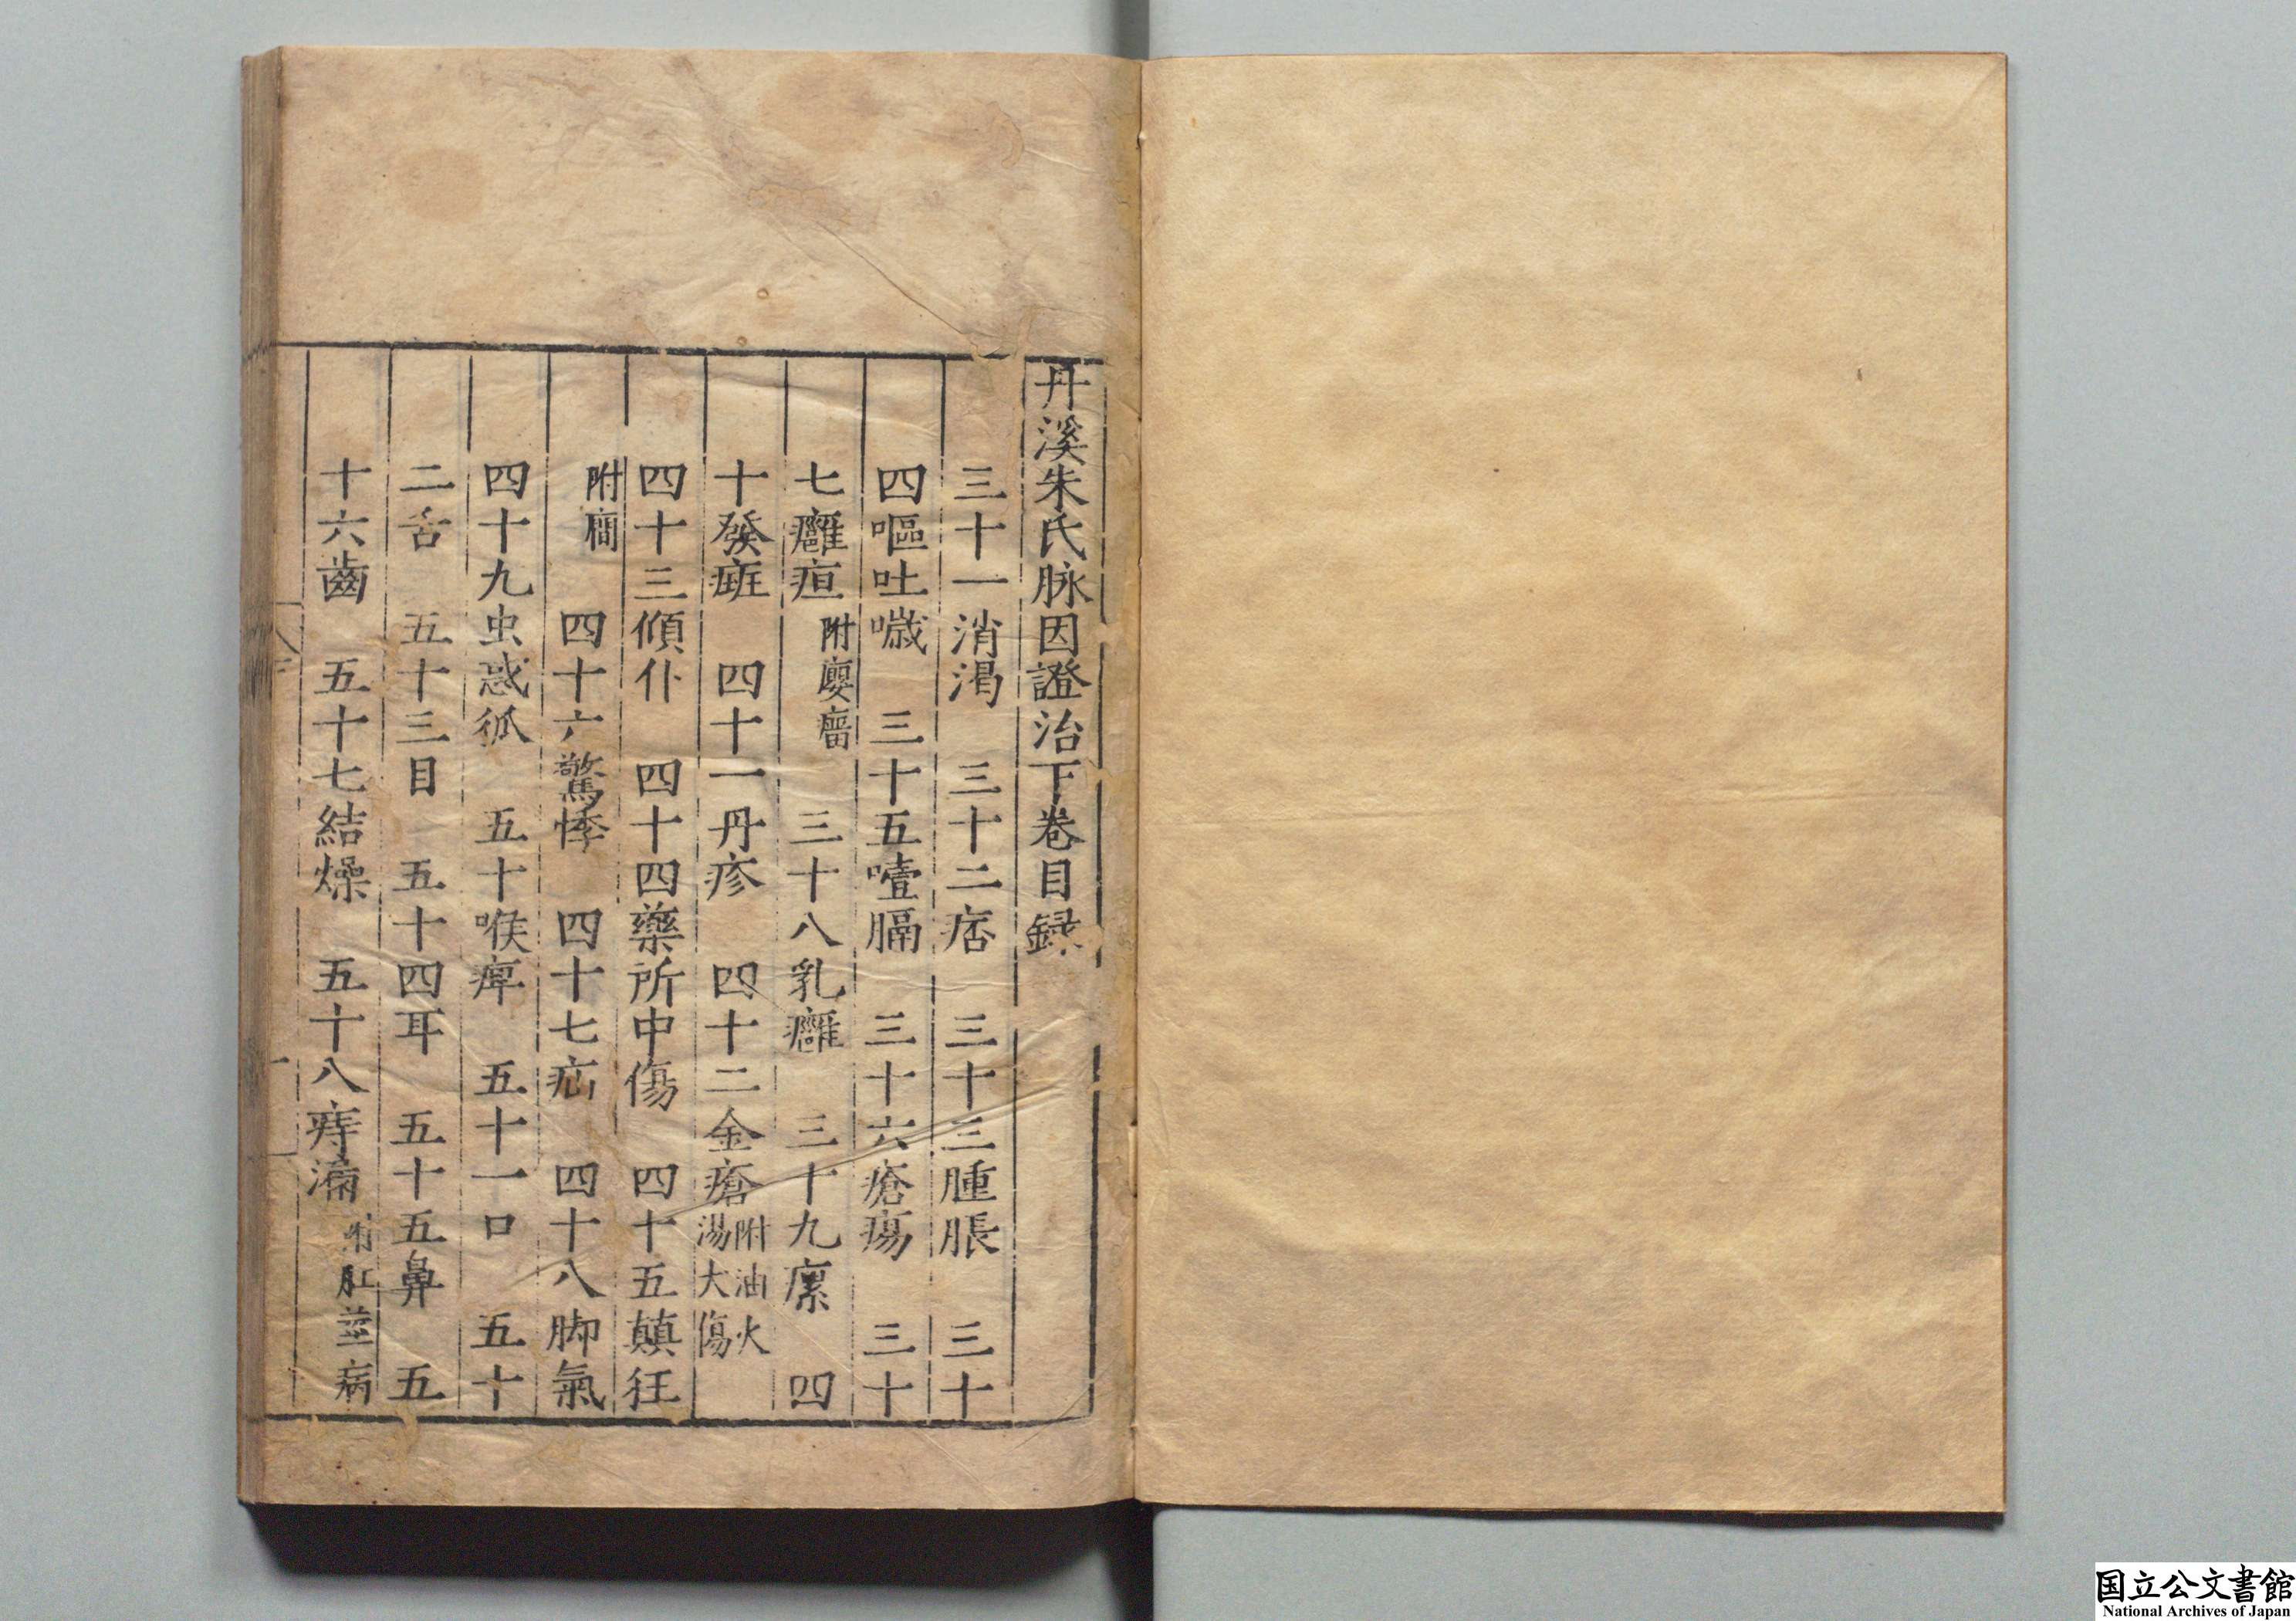 丹溪朱氏脉因證治下卷目録
三十一消渇 三十二痞 三十三腫脹 三十
四嘔吐噦 三十五噎膈 三十六瘡瘍 三十
七癰疽 附癭瘤 三十八乳癰 三十九瘰 四
十發斑 四十一丹疹 四十二金瘡 附油火湯大傷
四十三傾仆 四十四藥所中傷 四十五顛狂
附癎 四十六驚悸 四十七疝 四十八脚氣
四十九虫惑狐 五十喉痺 五十一口 五十
二舌 五十三目 五十四耳 五十五鼻 五
十六齒 五十七結燥 五十八痔漏 附肛並病
国立公文書館
National Archives of Japan